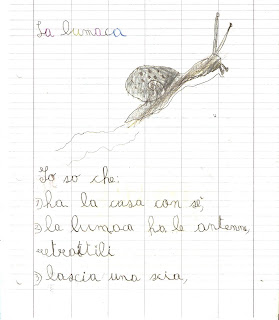 La lumaca
Io so che:
1) ha la casa con sé,
2) la lumaca ha le antenne,
retrattili
3) lascia una scia,